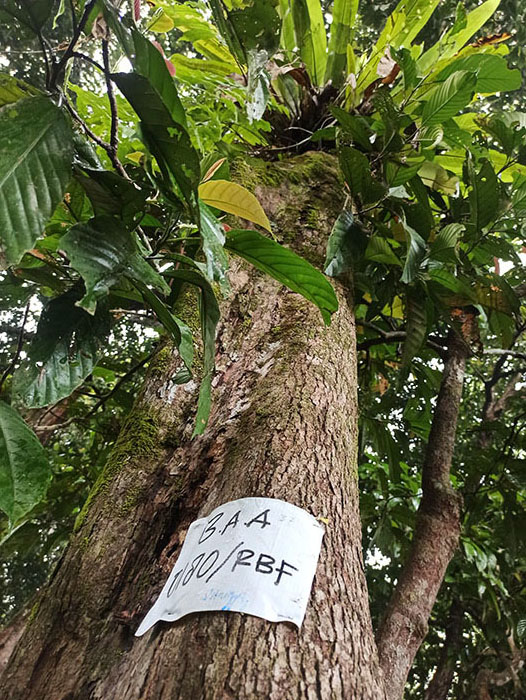 B.A.A
0180/RBF